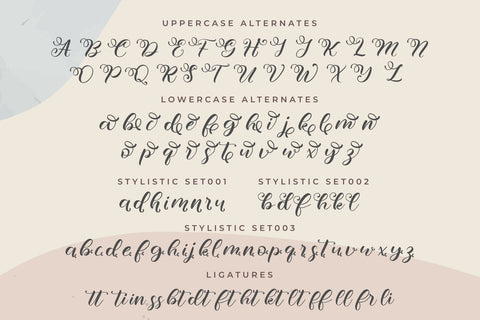 UPPERCASE ALTERNATES
A B C D E F G H I J K L M N
O P Q R S T U V W X Y Z
LOWERCASE ALTERNATES
a b c d e f g h i j k l m n
o p q r s t u v w x y z
STYLISTIC SET001 STYLISTIC SET002
a d h i m n r u b d f h k l
STYLISTIC SET003
a b c d e f g h i j k l m n o p q r s t u v w x y z
LIGATURES
tt ti in ss bt dt ft ht kt lt ff ll fr li